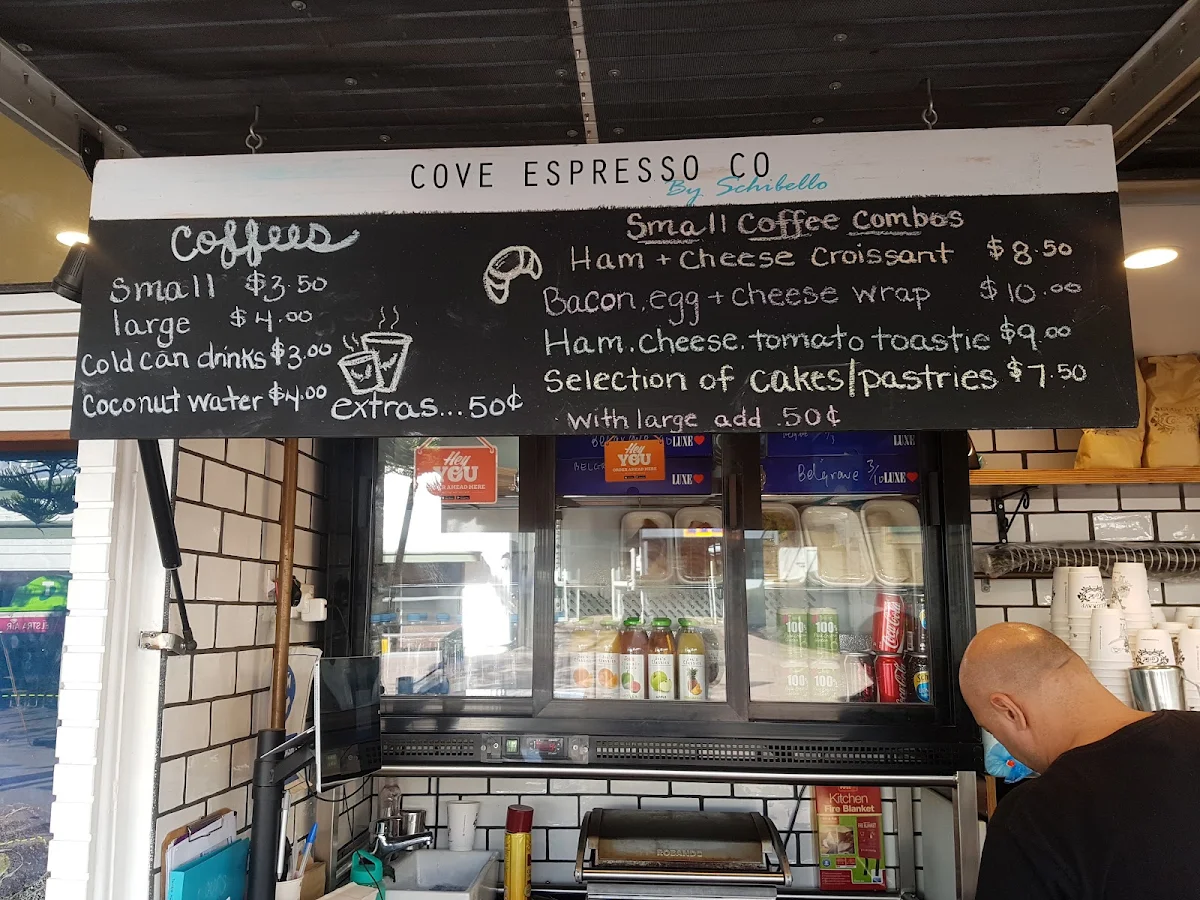 COVE ESPRESSO CO
By Schibello
Coffees
Small $3.50
large $4.00
Cold can drinks $3.00
Coconut water $4.00
extras...50¢
Small Coffee Combos
Ham + cheese Croissant $8.50
Bacon, egg + cheese wrap $10.00
Ham.cheese.tomato toastie $9.00
Selection of cakes/pastries $7.50
with large add .50¢
Hey
YOU
ORDER AHEAD HERE
Hey
YOU
ORDER AHEAD HERE
LUXE
LUXE
LUXE
Belgrave
LUXE
100%
100%
100%
100%
Coca-Cola
Kitchen
Fire Blanket
ROBAND